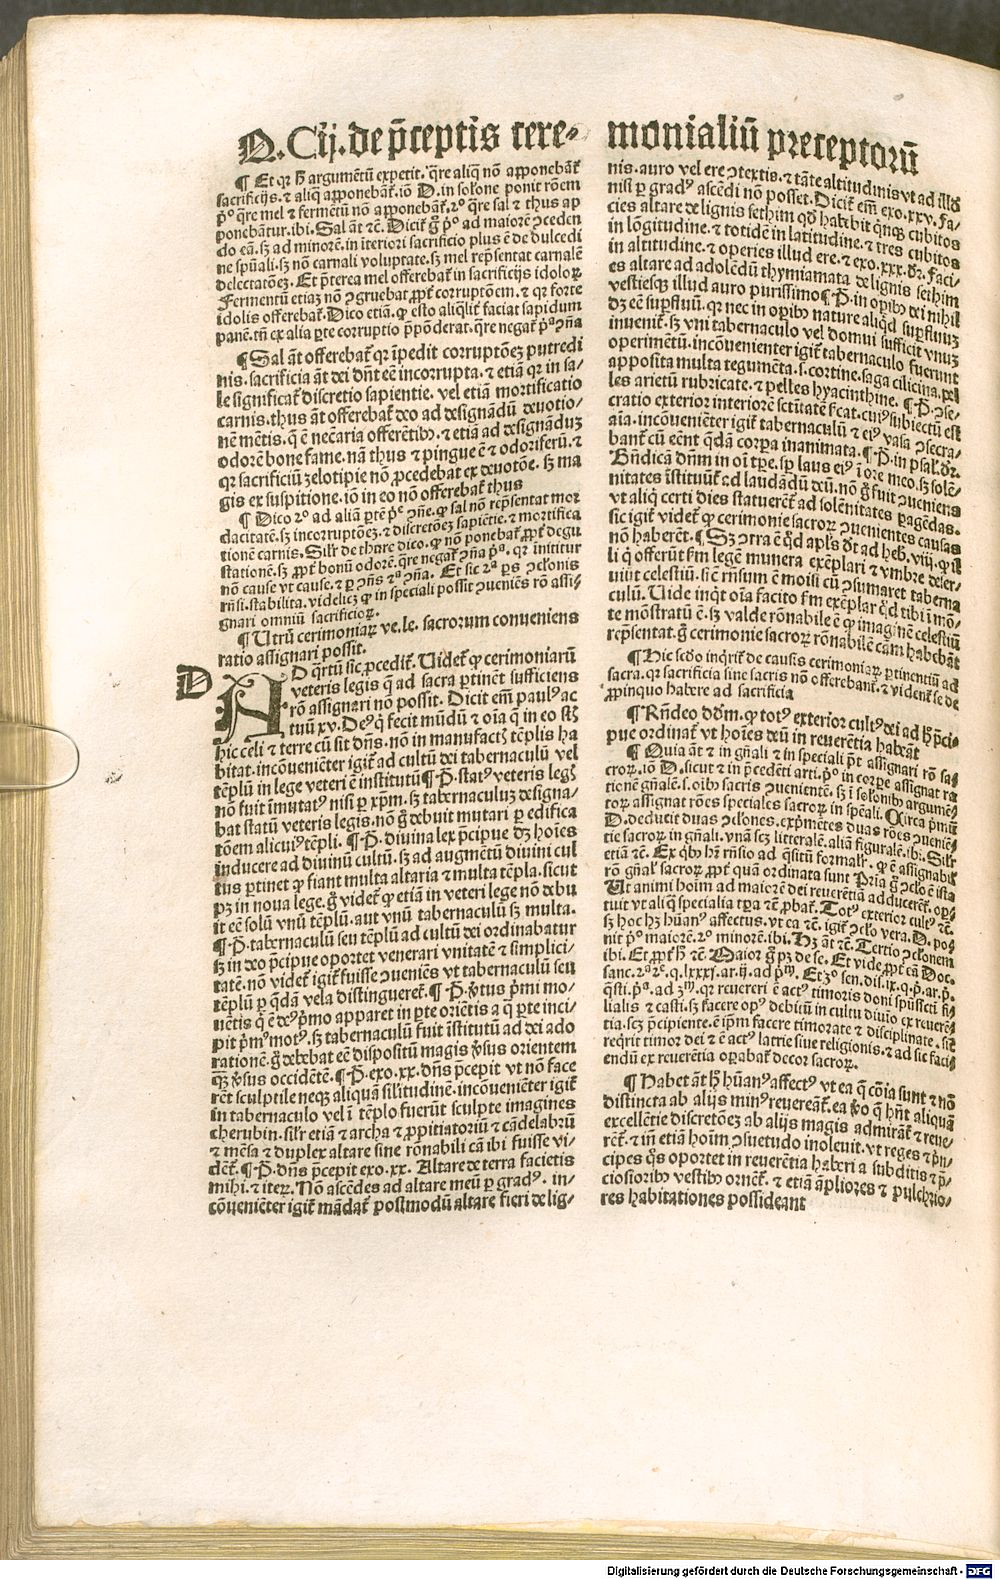 Q. Cij. de p̄ceptis cere-
¶ Et qꝛ h̄ argumētū expetit. q̄re aliq̄ nō apponebāt᷑
sacrificijs. ⁊ aliq̄ apponebāt᷑. iō D. in solone ponit rōem
p̄ꝰ q̄re mel ⁊ fermētū nō apponebāt᷑. 2ꝰ q̄re sal ⁊ thus ap
ponebātur. ibi. Sal āt ⁊c̄. Dicit g̊ pꝰ ad maiorē ꝯceden
do eā. sꝫ ad minorē. in īteriori sacrificio plus ē de dulcedi
ne spūali. sꝫ nō carnali voluptate. sꝫ mel rep̄sentat carnalē
delectatōeꝫ. Et p̄terea mel offerebat᷑ in sacrificijs idoloꝝ
Fermentū etiaꝫ nō ꝯgruebat, ꝓpt᷑ corruptōem. ⁊ qꝛ forte
idolis offerebat᷑. Dico etiā. ꝙ esto aliqͥlit᷑ faciat sapidum
panē. tn̄ ex alia ꝑte corruptio p̄pōderat. q̄re negat᷑ pꝰ ꝯña
¶ Sal āt offerebat᷑ qꝛ īpedit corruptōeꝫ putredi
nis. sacrificia āt dei dn̄t eē incorrupta. ⁊ etiā qꝛ in sa-
le significat᷑ discretio sapientie. vel etiā mortificatio
carnis. thus āt offerebat᷑ deo ad designādū deuotio-
nē mētis. q̄ ē nec̄aria offerētibꝰ. ⁊ etiā ad designāduꝫ
odorē bone fame. nā thus ⁊ pingue ē ⁊ odoriferū. ⁊
qꝛ sacrificiū zelotipie nō ꝓcedebat ex deuotōe. sꝫ ma
gis ex suspitione. iō in eo nō offerebat᷑ thus
¶ Dico 2ꝰ ad aliā ꝑtē pᵉ ꝯñe. ꝙ sal nō rep̄sentat mor
dacitatē. sꝫ incorruptōeꝫ. ⁊ discretōeꝫ sapiētie. ⁊ mortifica
tionē carnis. Silr̄ de thure dico. ꝙ nō ponebat᷑ ꝓpt᷑ degu
stationē. sꝫ ꝓpt᷑ bonū odorē. q̄re negat᷑ ꝯña pᵃ. qꝛ inititur
nō cause vt cause. ⁊ ꝑ ꝯñs 2ᵃ ꝯña. Et sic 2ᵃ ꝑs ꝯclonis
rn̄si. stabilita. videlicꝫ ꝙ in speciali possit ꝯueniēs rō assi-
gnari omniū sacrificioꝝ.
¶ Utrū cerimoniaꝝ ve. le. sacrorum conueniens
ratio assignari possit.
D
AD q̄rtū sic ꝓcedit᷑. Uidet᷑ ꝙ cerimoniarū
veteris legis q̄ ad sacra ꝑtinēt sufficiens
rō assignari nō possit. Dicit em̄ paulꝰ ac
tuū xv. Deꝰ q̇ fecit mūdū ⁊ oīa q̄ in eo sūt
hic celi ⁊ terre cū sit dn̄s. nō in manufactꝭ tēplis ha
bitat. incōueniēter igit᷑ ad cultū dei tabernaculū vel
tēplū in lege veteri ē institutū ¶ P̄. statꝰ veteris legꝭ
nō fuit īmutatꝰ nisi ꝑ xp̄m. sꝫ tabernaculuꝫ designa-
bat statū veteris legis. nō g̊ debuit mutari ꝑ edifica
tōem alicuiꝰ tēpli. ¶ P̄. diuina lex p̄cipue dꝫ hoīes
inducere ad diuinū cultū. sꝫ ad augmētū diuini cul
tus ꝑtinet ꝙ fiant multa altaria ⁊ multa tēpla. sicut
pꝫ in noua lege. g̊ videt᷑ ꝙ etiā in veteri lege nō debu
it eē solū vnū tēplū. aut vnū tabernaculū sꝫ multa.
¶ P̄. tabernaculū seu tēplū ad cultū dei ordinabatur
sꝫ in deo p̄cipue oportet venerari vnitatē ⁊ simplici-
tatē. nō videt᷑ igit᷑ fuisse ꝯueniēs vt tabernaculū seu
tēplū ꝑ q̄dā vela distingueret᷑. ¶ P̄. v̄tus p̄mi mo-
uētis q̇ ē deꝰ p̄mo apparet in ꝑte oriētis a q̄ ꝑte inci-
pit p̄mꝰ motꝰ. sꝫ tabernaculū fuit īstitutū ad dei ado
rationē. g̊ debebat eē dispositū magis v̄sus orientem
qͣꝫ v̄sus occidētē. ¶ P̄. exo. xx. dn̄s p̄cepit vt nō face
rēt sculptile neqꝫ aliquā sil̄itudinē. incōueniēter igit᷑
in tabernaculo vel ī tēplo fuerūt sculpte imagines
cherubin. silr̄ etiā ⁊ archa ⁊ ꝓpitiatoriū ⁊ cādelabrū
⁊ mēsa ⁊ duplex altare sine rōnabili cā ibi fuisse vi-
dēt᷑. ¶ P̄. dn̄s p̄cepit exo. xx. Altare de terra facietis
mihi. ⁊ iteꝝ. Nō ascēdes ad altare meū ꝑ gradꝰ. in-
cōueniēter igit᷑ mādat᷑ postmodū altare fieri de lig-
monialiū preceptorū
nis. auro vel ere ꝯtextis. ⁊ tāte altitudinis vt ad illḋ
nisi ꝑ gradꝰ ascēdi nō posset. Dicit᷑ em̄ exo. xxv. Fa-
cies altare de lignis sethim qḋ habebit qͥnqꝫ cubitos
in lōgitudine. ⁊ totidē in latitudine. ⁊ tres cubitos
in altitudine. ⁊ operies illud ere. ⁊ exo. xxx. dr̄. Faci-
es altare ad adolēdū thymiamata de lignis sethim
vestiesqꝫ illud auro purissimo ¶ P̄. in oꝑibꝰ dei nihil
dꝫ eē suꝑfluū. qꝛ nec in oꝑibꝰ nature aliqͥd suꝑfluuꝫ
inuenit᷑. sꝫ vni tabernaculo vel domui sufficit vnuꝫ
operimētū. incōuenienter igit᷑ tabernaculo fuerunt
apposita multa tegumēta. s. cortine. saga cilicina. pel
les arietū rubricate. ⁊ pelles hyacinthine. ¶ P̄. ꝯse-
cratio exterior interiorē sctītatē sīcat. cuiꝰ subiectū est
aīa. incōueniēter igit᷑ tabernaculū ⁊ eiꝰ vasa ꝯsecra-
bant᷑ cū eēnt q̄dā corꝑa inanimata. ¶ P̄. in psal. dr̄.
Bn̄dicā dn̄m in oī tꝑe. sꝑ laus eiꝰ ī ore meo. sꝫ solē-
nitates īstituūt᷑ ad laudādū deū. nō g̊ fuit ꝯueniens
vt aliq̇ certi dies statuerēt᷑ ad solēnitates ꝑagēdas.
sic igit᷑ videt᷑ ꝙ cerimonie sacroꝝ ꝯuenientes causas
nō haberēt. ¶ Sꝫ ꝯ̄tra ē qḋ apl̄s dt̄ ad heb. viij. ꝙ il
li q̇ offerūt fm̄ legē munera exēplari ⁊ vmbre deser-
uiūt celestiū. sic̄ rn̄sum ē moisi cū ꝯsumaret taberna
culū. Uide inqͥt oīa facito fm̄ exēplar qḋ tibi ī mō-
te mōstratū ē. sꝫ valde rōnabile ē ꝙ imaginē celestiū
rep̄sentat. g̊ cerimonie sacroꝝ rōnabilē cām habebāt
¶ Hic scḋo inqͥrit᷑ de causis cerimoniaꝝ ꝑtinentiū ad
sacra. qꝛ sacrificia sine sacris nō offerebant᷑. ⁊ vident᷑ se de
ꝓpinquo habere ad sacrificia
¶ Rn̄deo ḋdm̄. ꝙ totꝰ exterior cultꝰ dei ad h̄ p̄ci-
pue ordinat᷑ vt hoīes deū in reuerētia habeāt
¶ Quia āt ⁊ in gn̄ali ⁊ in speciali p̄t assignari rō sa-
croꝝ. iō D. sicut ⁊ in p̄cedēti arti. pꝰ in corꝑe assignat ra
tionē gn̄alē. s. oībꝰ sacris ꝯuenientē. sꝫ ī solonibꝰ argumē-
toꝝ assignat rōes speciales sacroꝝ in spēali. Circa p̄mū
D. deducit duas ꝯclones. exp̄mētes duas rōes ꝯueniē-
tie sacroꝝ in gn̄ali. vnā scꝫ litteralē. aliā figuralē. ibi. Silr̄
etiā ⁊c̄. Ex qͥbꝰ hr̄ rn̄sio ad q̄situm formalr̄. ꝙ ē assignabil̄
rō gn̄al̄ sacroꝝ. ꝓpt᷑ quā ordinata sunt Pria g̊ ꝯclo ē ista
Ut animi hoīm ad maiorē dei reuerētiā adducerēt᷑. opꝛ-
tuit vt aliq̄ specialia tꝑa ⁊c̄ ꝓbat᷑. Totꝰ exterior cultꝰ ⁊c̄.
sꝫ hoc hꝫ hūanꝰ affectus. vt ea ⁊c̄. igit᷑ ꝯclo vera. D. po-
nit pꝰ maiorē. 2ꝰ minorē. ibi. Hꝫ āt ⁊c̄. Tertio ꝯclonem
ibi. Et ꝓpt᷑ h̄ ⁊c̄. Maior g̊ pꝫ de se. Et vide ꝓpt᷑ eā Doc.
sanc. 2ᵃ 2ᵉ. q. lxxxj. ar. ij. ad pᵐ. Et 3ꝰ sen. dis. ix. q. p̄. ar. p̄.
q̄sti. pᵃ. ad 3ᵐ. qꝛ reuereri ē actꝰ timoris doni spūssctī fi-
lialis ⁊ casti. sꝫ facere opꝰ debitū in cultū diuīo ex reuerē-
tia. scꝫ p̄cipiente. ē ip̄m facere timorate ⁊ disciplinate. sic̄
reqͥrit timor dei ⁊ ē actꝰ latrie siue religionis. ⁊ ad sic faci-
endū ex reuerētia oꝑabat᷑ decor sacroꝝ.
¶ Habet āt h̄ hūanꝰ affectꝰ vt ea q̄ cōia sunt ⁊ nō
distincta ab alijs minꝰ reuereāt᷑. ea v̊o q̄ hn̄t aliquā
excellētie discretōeꝫ ab alijs magis admirāt᷑ ⁊ reue-
rēt᷑. ⁊ in̄ etiā hoīm ꝯsuetudo inoleuit. vt reges ⁊ p̄n-
cipes q̊s oportet in reuerētia haberi a subditis ⁊ p̄-
ciosioribꝰ vestibꝰ ornēt᷑. ⁊ etiā āpliores ⁊ pulchrio-
res habitationes possideant
Digitalisierung gefördert durch die Deutsche Forschungsgemeinschaft - DFG